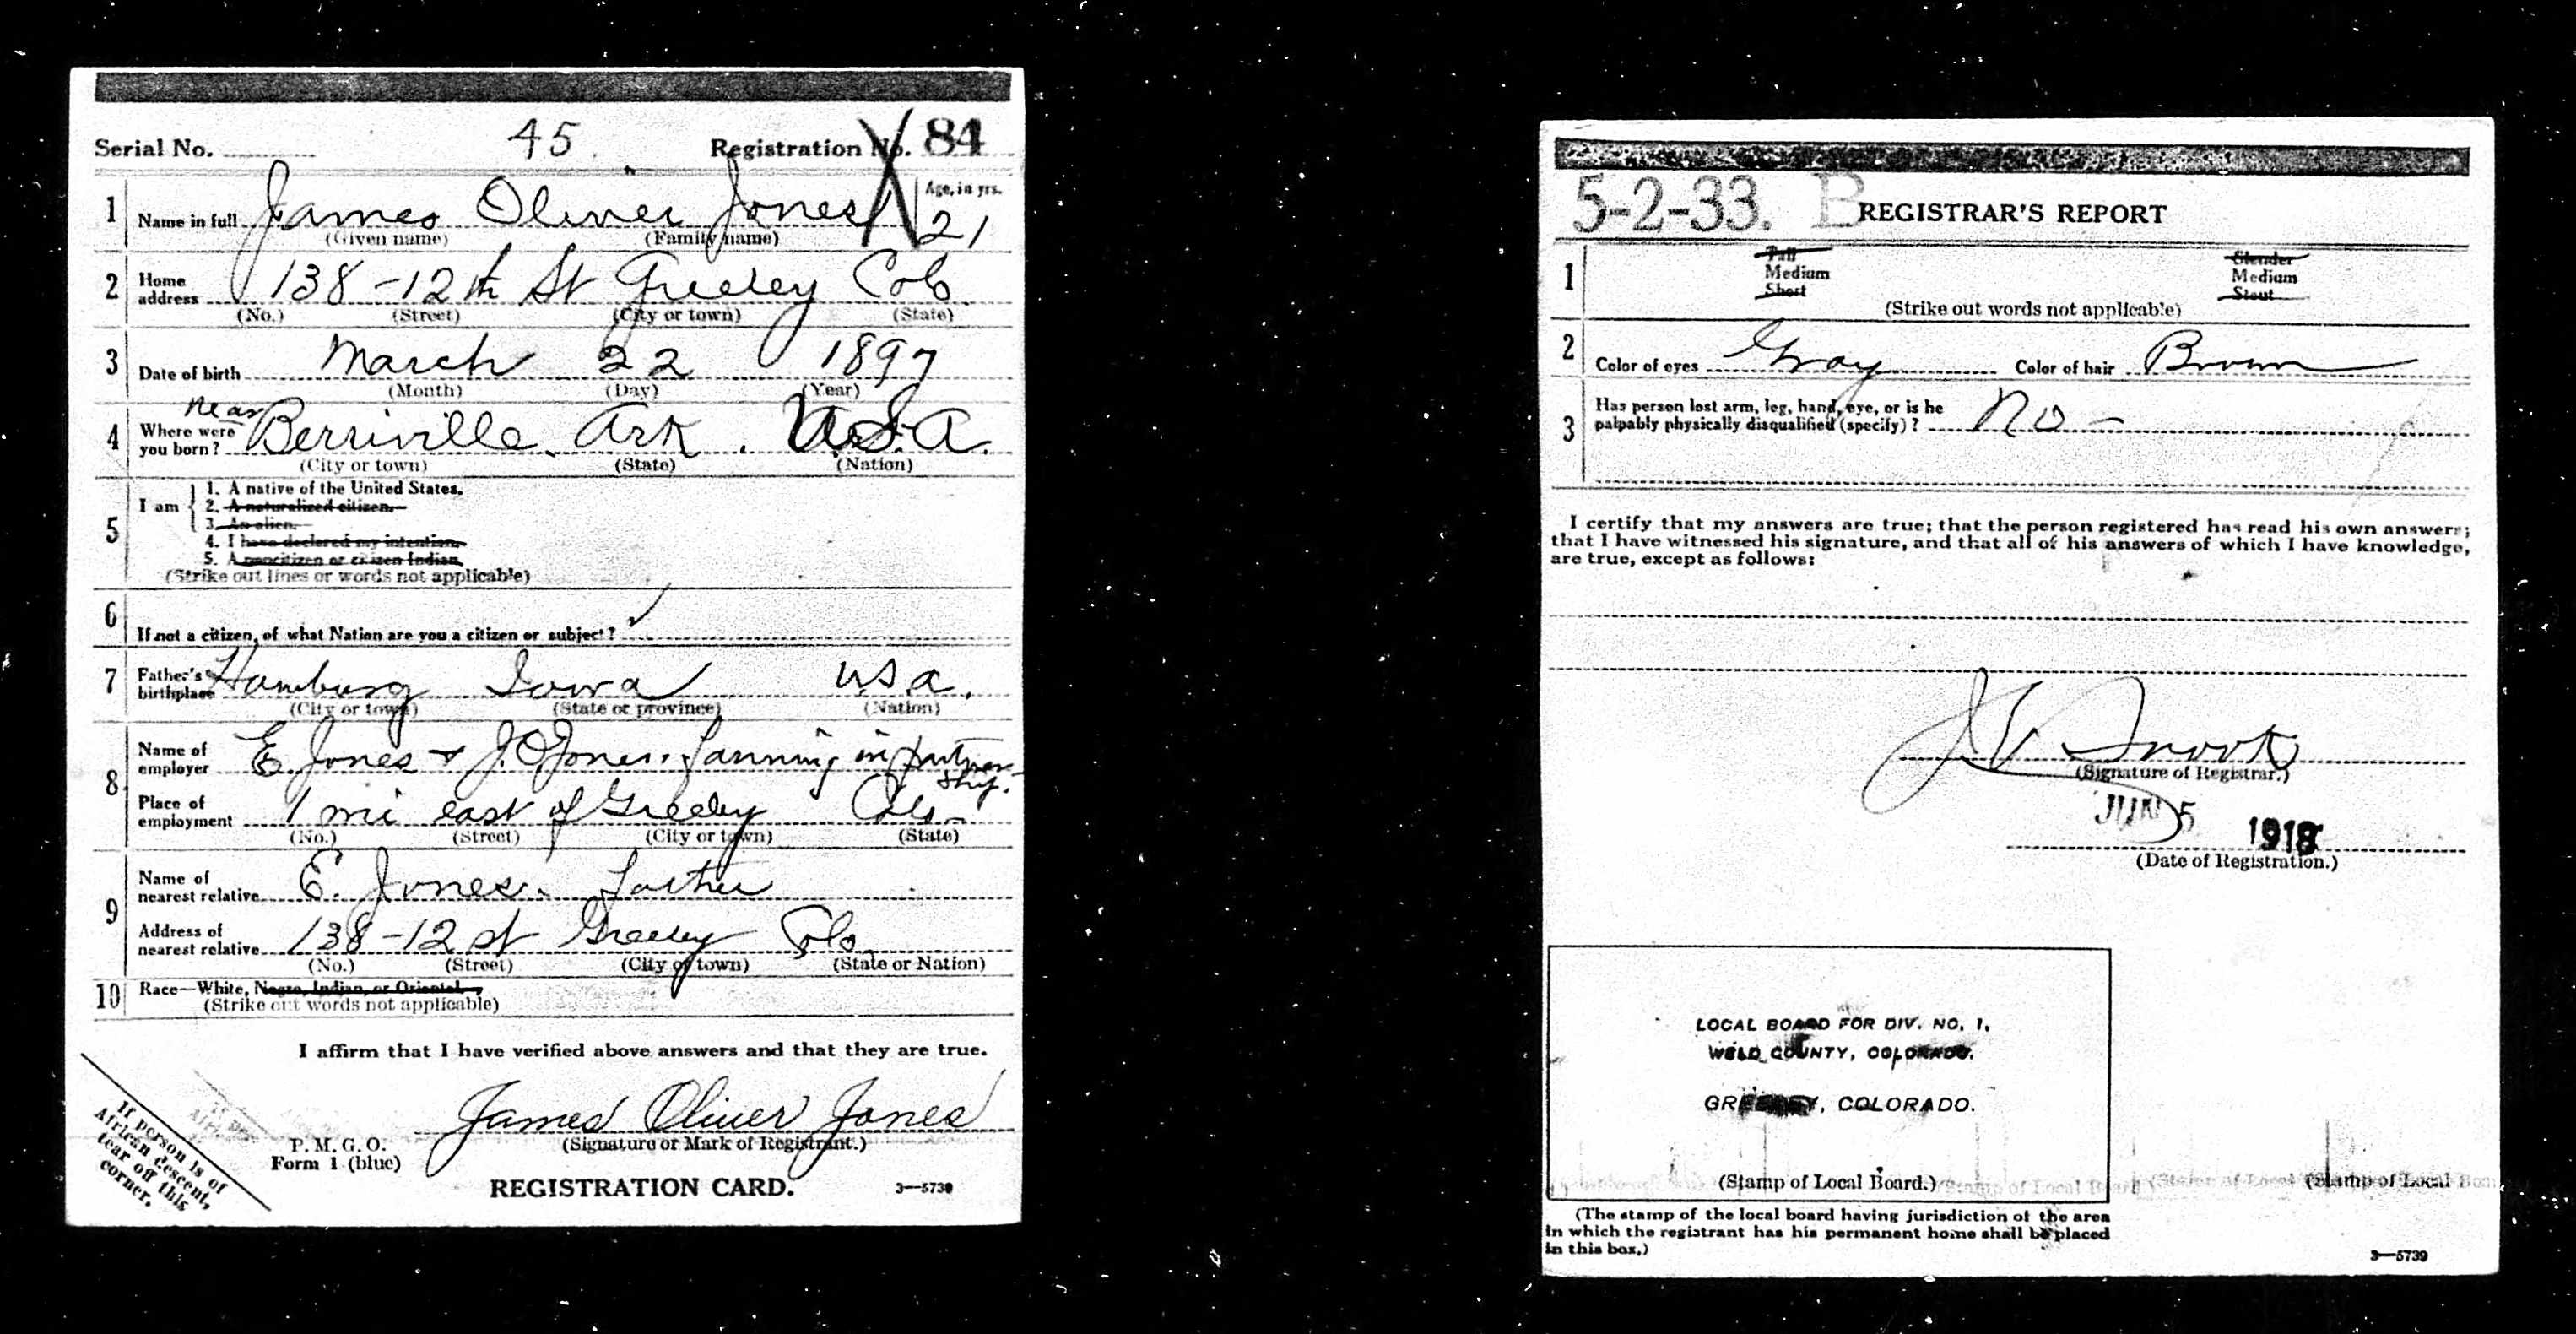 Serial No. 45 Registration No. 84
1 Name in full James Oliver Jones Age, in yrs. 21
(Given name) (Family name)
2 Home address 138 - 12 th St Greeley Colo.
(No.) (Street) (City or town) (State)
3 Date of birth March 22 1897
(Month) (Day) (Year)
near
4 Where were you born? Berriville Ark. U.S.A.
(City or town) (State) (Nation)
5 I am
1. A native of the United States.
2. A naturalized citizen.
3. An alien.
4. I have declared my intention.
5. A noncitizen or citizen Indian.
(Strike out lines or words not applicable)
6 If not a citizen, of what Nation are you a citizen or subject?
7 Father's birthplace Hamburg Iowa USA.
(City or town) (State or province) (Nation)
8 Name of employer E. Jones & J.O. Jones. farming in partnership.
Place of employment 1 mi east of Greeley Colo.
(No.) (Street) (City or town) (State)
9 Name of nearest relative E. Jones. Father
Address of nearest relative 138 - 12 st Greeley Colo
(No.) (Street) (City or town) (State or Nation)
10 Race—White, Negro, Indian, or Oriental.
(Strike out words not applicable)
I affirm that I have verified above answers and that they are true.
James Oliver Jones
(Signature or Mark of Registrant.)
P. M. G. O.
Form 1 (blue)
REGISTRATION CARD. 3—5739
If person is of
African descent,
tear off this
corner.
5-2-33. B REGISTRAR'S REPORT
1 Tall Slender
Medium Medium
Short Stout
(Strike out words not applicable)
2 Color of eyes Gray Color of hair Brown
3 Has person lost arm, leg, hand, eye, or is he
palpably physically disqualified (specify)? No -
I certify that my answers are true; that the person registered has read his own answers;
that I have witnessed his signature, and that all of his answers of which I have knowledge,
are true, except as follows:
J. V. Snook
(Signature of Registrar.)
JUN 5 1918
(Date of Registration.)
LOCAL BOARD FOR DIV. NO. 1,
WELD COUNTY, COLORADO.
GREELEY, COLORADO.
(Stamp of Local Board.)
(The stamp of the local board having jurisdiction of the area
in which the registrant has his permanent home shall be placed
in this box.)
3—5739